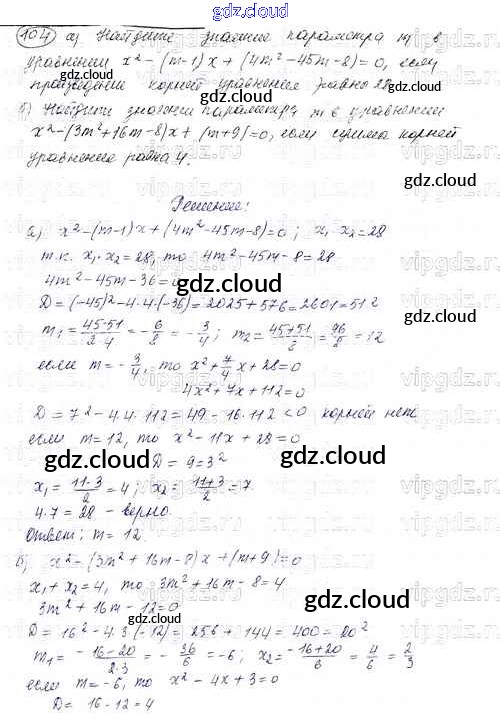 gdz.cloud
104 а) Найдите значение параметра m в
уравнении x² - (m-1)x + (4m² - 45m - 8) = 0, если
произведение корней уравнения равно 28.
б) Найти значения параметра m в уравнении
x² - (3m² + 16m - 8)x + (m+9) = 0, если сумма корней
уравнения равна 4.
gdz.cloud
Решение:
а) x² - (m-1)x + (4m² - 45m - 8) = 0; x₁·x₂ = 28
т.к. x₁·x₂ = 28, то 4m² - 45m - 8 = 28
4m² - 45m - 36 = 0
gdz.cloud
D = (-45)² - 4·4·(-36) = 2025 + 576 = 2601 = 51²
m₁ = (45-51)/(2·4) = -6/8 = -3/4; m₂ = (45+51)/8 = 96/8 = 12
если m = -3/4, то x² + 7/4 x + 28 = 0
4x² + 7x + 112 = 0
D = 7² - 4·4·112 = 49 - 16·112 < 0 корней нет
если m = 12, то x² - 11x + 28 = 0
gdz.cloud
D = 9 = 3²
x₁ = (11-3)/2 = 4; x₂ = (11+3)/2 = 7.
4·7 = 28 - верно.
Ответ: m = 12.
б) x² - (3m² + 16m - 8)x + (m+9) = 0
x₁ + x₂ = 4, то 3m² + 16m - 8 = 4
3m² + 16m - 12 = 0
D = 16² - 4·3·(-12) = 256 + 144 = 400 = 20²
m₁ = (-16-20)/(2·3) = -36/6 = -6; x₂ = (-16+20)/6 = 4/6 = 2/3
если m = -6, то x² - 4x + 3 = 0
D = 16 - 12 = 4
gdz.cloud
vipgdz.ru